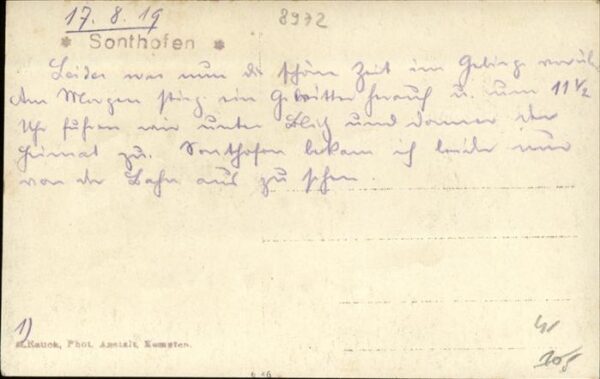 17. 8. 19
8972
* Sonthofen *
Leider war nun die schöne Zeit im Gebirge vorüber.
Am Morgen stieg ein Gewitter herauf u. um 11 1/2
Uhr fuhren wir unter Blitz und Donner der
Heimat zu. Sonthofen bekam ich leider nur
von der Bahn aus zu sehen.
1)
Rauch, Phot. Anstalt, Kempten.